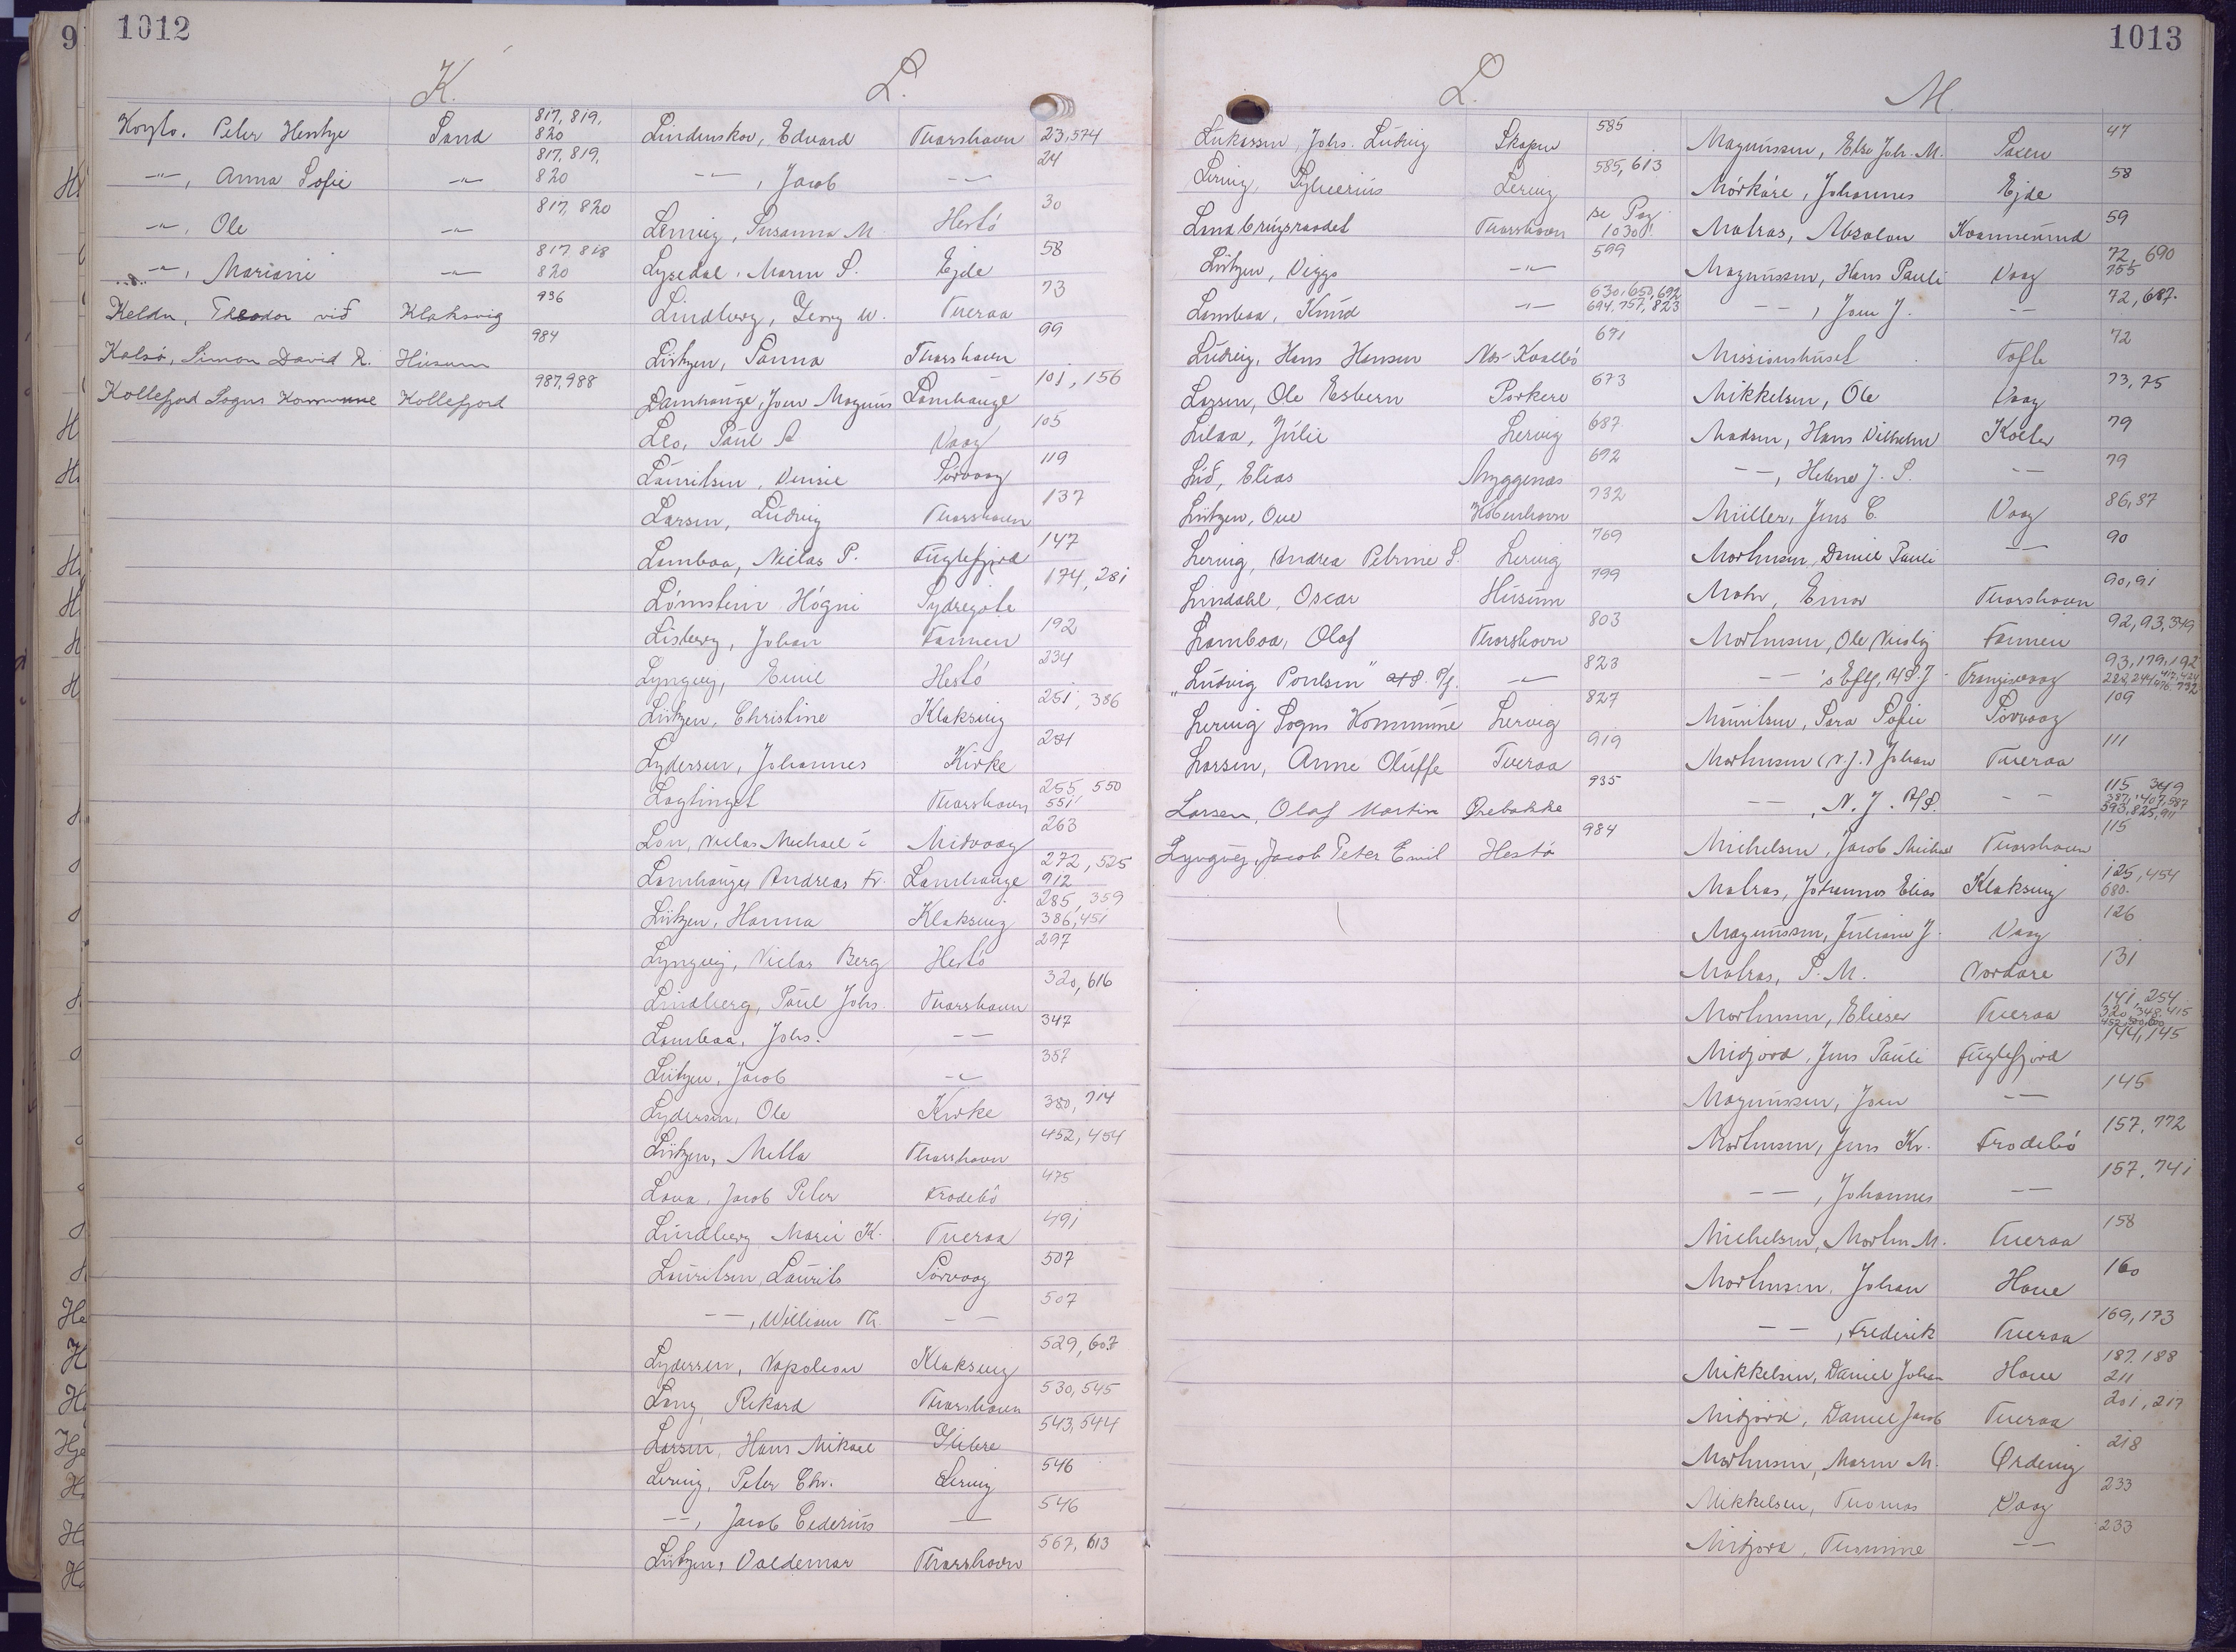 1012
K.
Peter Hentze Sand 817, 819, 820
-"-, Anna Sofie -"- 817, 819, 820
-"-, Ole -"- 817, 820
-"-, Mariane -"- 817, 818 820
Keldu, Theodor við Klaksvig 936
Kalsö, Simon David R. Húsum 984
Kollefjord Sogns Kommune Kollefjord 987, 988
L.
Lindenskov, Edvard Thorshavn 23, 574
-"-, Jacob -"- 24
Susanna M. Hestö 30
Lysedal, Maren S. Ejde 58
Lindberg, Georg W. Tveraa 73
Lützen, Sanna Thorshavn 99
Lamhauge, Joen Magnus Lamhauge 101, 156
Leo, Paul A Vaag 105
Lauritsen, Sörvaag 119
Larsen, Ludvig Thorshavn 137
Lamboa, Niclas P. Fuglefjord 147
Högni Sydregöte 174, 281
Lisberg, Johan Famien 192
Lyngvig, Emil Hestö 234
Lützen, Christine Klaksvig 251, 386
Lydersen, Johannes Kirke 251
Lagtinget Thorshavn 255, 550 551
Lon, Niclas Michael i Midvaag 263
Lamhauge Andreas Fr. Lamhauge 272, 525 912
Lützen, Hanna Klaksvig 285, 359 386, 451
Lyngvig, Niclas Berg Hestö 297
Lindberg, Paul Johs. Thorshavn 320, 616
Lamboa, Johs. -- 347
Lützen, Jacob -"- 357
Lydersen, Ole Kirke 380, 714
Lützen, Mella Thorshavn 452, 454
Lava, Jacob Peter Frodebö 475
Lindberg Marie K. Tveraa 491
Lauritsen, Laurits Sörvaag 507
--, William Th. -- 507
Lydersen, Napoleon Klaksvig 529, 607
Lang Rikard Thorshavn 530, 545
Larsen, Hans Mikael Glibre 543, 544
Lervig, Peter Chr. Lervig 546
--, Jacob Cederius — 546
Lützen, Valdemar Thorshavn 567, 613
1013
L.
Lukassen, Johs. Ludvig Skapun 585
Lervig, Sylverius Lervig 585, 613
Landbrugsraadet Thorshavn se Pag. 1030!
Lützen, Viggo -"- 599
Lamboa, Knud -"- 630, 650, 692 694, 757, 823
Ludvig, Hans Hansen Nes-Kvalbö 671
Larsen, Ole Esbern Porkere 673
Lilaa, Julie Lervig 687
Lid, Elias Myggenæs 692
Lützen, Ove Köbenhavn 732
Lervig, Andrea Petrine S. Lervig 769
Lindahl, Oscar Húsum 799
Lamboa, Olaf Thorshavn 803
"Ludvig Poulsen" A/S. Tf. -"- 823
Lervig Sogns Kommune Lervig 827
Larsen, Anne Oluffe Tveraa 919
Larsen, Olaf Martin Ørebakke 935
Lyngvig, Jacob Peter Emil Hestö 984
M.
Magnussen, Else Joh. M. Saxen 47
Mörköre, Johannes Ejde 58
Matras, Absalon Kvannesund 59
Magnussen, Hans Pauli Vaag 72, 690 755
--, Joen J. -- 72, 687.
Missionshuset Tofte 72
Mikkelsen, Ole Vaag 73, 75
Madsen, Hans Vilhelm Kolter 79
--, Helene J. S. -- 79
Müller, Jens C. Vaag 86, 87
Mortensen, Daniel Pauli -- 90
Mohr, Emor Thorshavn 90, 91
Mortensen, Ole Famien 92, 93, 349
-- 's Eftf, A/S. J. Trangisvaag 93, 179, 192
Mauritsen, Sara Sofie Sörvaag 109
Mortensen (N.J.) Johan Tveraa 111
--, N. J. A/S. -- 115, 349 387, 407, 987 593, 825, 911
Michelsen, Jacob Michael Thorshavn 115
Matras, Johannes Elias Klaksvig 125, 454 680.
Magnussen, Juliane J. Vaag 126
Matras, S. M. Nordöre 131
Mortensen, Elieser Tveraa 141, 254 320, 348, 415
Midjord, Jens Pauli Fuglefjord 144, 145
Magnussen, Joen -- 145
Mortensen, Jens Kr. Frodebö 157, 772
--, Johannes -- 157, 741
Michelsen, Morten M. Tveraa 158
Mortensen, Johan Hove 160
--, Frederik Tveraa 169, 173
Mikkelsen, Daniel Johan Hove 187, 188 211
Midjord, Daniel Jacob Tveraa 201, 217
Mortensen, Maren M. Ørdevig 218
Mikkelsen, Thomas Vaag 233
Midjord, Thomine -- 233